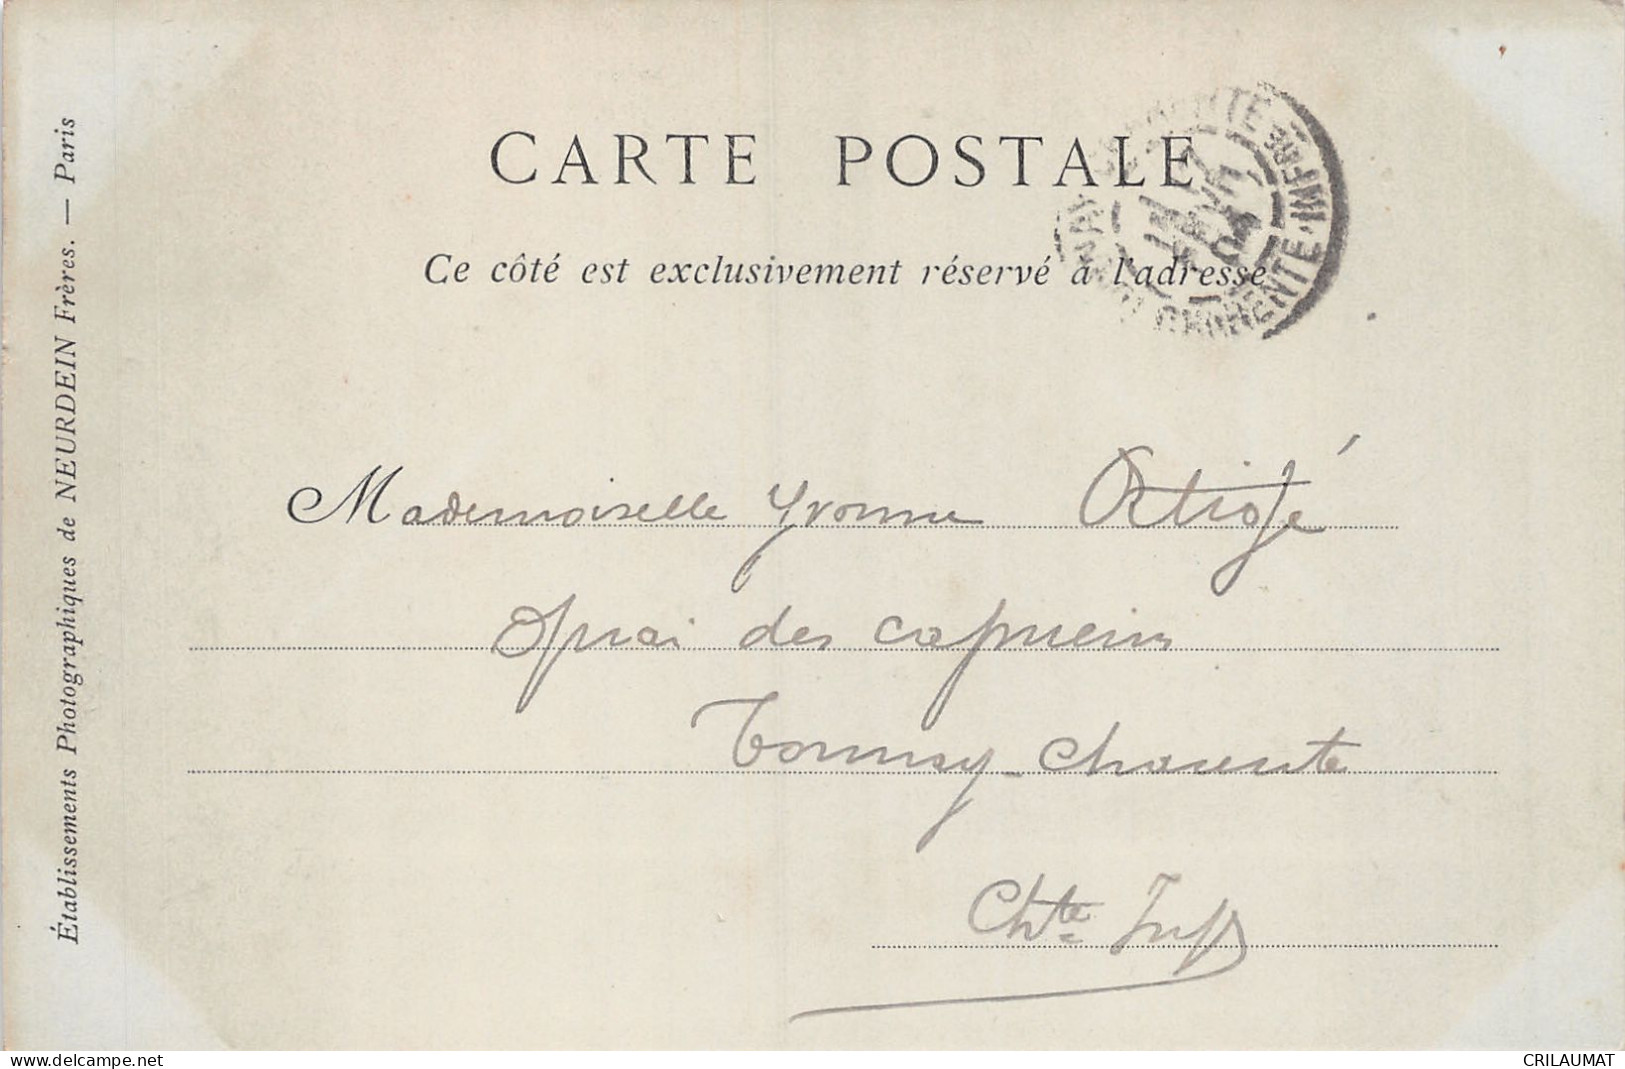 CARTE POSTALE
Ce côté est exclusivement réservé à l'adresse
Mademoiselle Yvonne
Quai des capucins
Tonnay-Charente
Chte Infr
Établissements Photographiques de NEURDEIN Frères. — Paris
TONNAY-CHARENTE
CHARENTE-INFRE
04
www.delcampe.net
CRILAUMAT